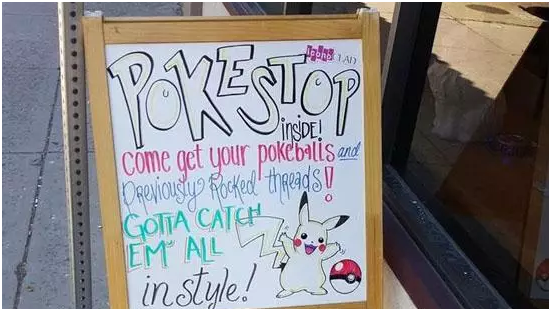 POKESTOP
inside!
come get your pokeballs and
previously Rocked threads!
GOTTA CATCH
EM' ALL
in style!